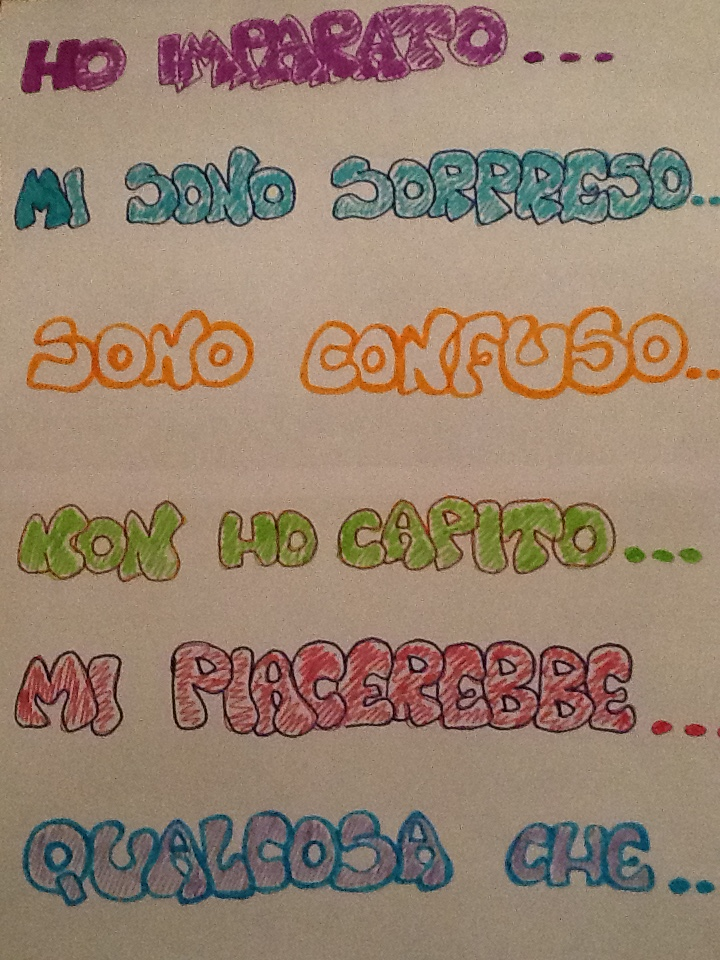 HO IMPARATO...
MI SONO SORPRESO..
SONO CONFUSO..
NON HO CAPITO...
MI PIACEREBBE...
QUALCOSA CHE..